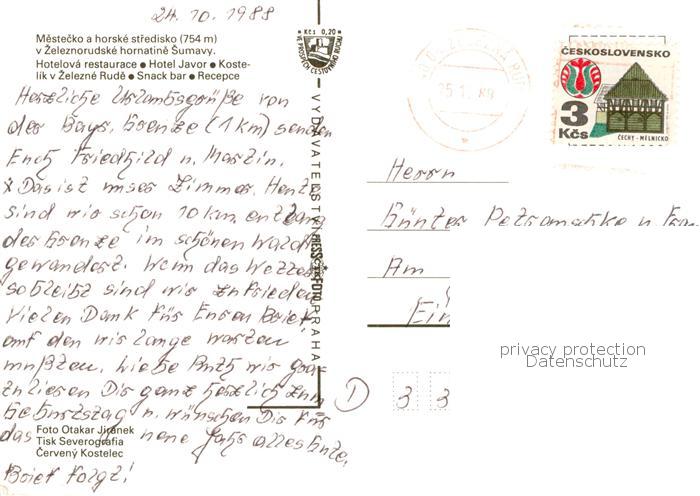 24. 10. 1988
Městečko a horské středisko (754 m)
v Železnorudské hornatině Šumavy.
Hotelová restaurace ● Hotel Javor ● Koste-
lík v Železné Rudě ● Snack bar ● Recepce
Herzliche Urlaubsgrüße von
der Bayr. Grenze (1 km) senden
Euch Friedhild u. Martin.
x Das ist unser Zimmer. Heute
sind wir schon 10 km entlang
der Grenze im schönen Wald
gewandert. Wenn das Wetter
so bleibt sind wir zufrieden
Vielen Dank für Euren Brief,
auf den wir lange warten
mußten. Liebe Ruth wir gra-
tulieren Dir ganz herzlich zum
Geburtstag u. wünschen Dir für
das neue Jahr alles Gute.
Brief folgt!
Foto Otakar Jiránek
Tisk Severografia
Červený Kostelec
Kčs 0,20
VE PROSPĚCH CESTOVNÍHO RUCHU
VYDAVATELSTVÍ PRESSFOTO PRAHA
ČESKOSLOVENSKO
3
Kčs
ČECHY-MĚLNICKO
Herrn
Günter u Frau
Am
privacy protection
Datenschutz
D 3 3